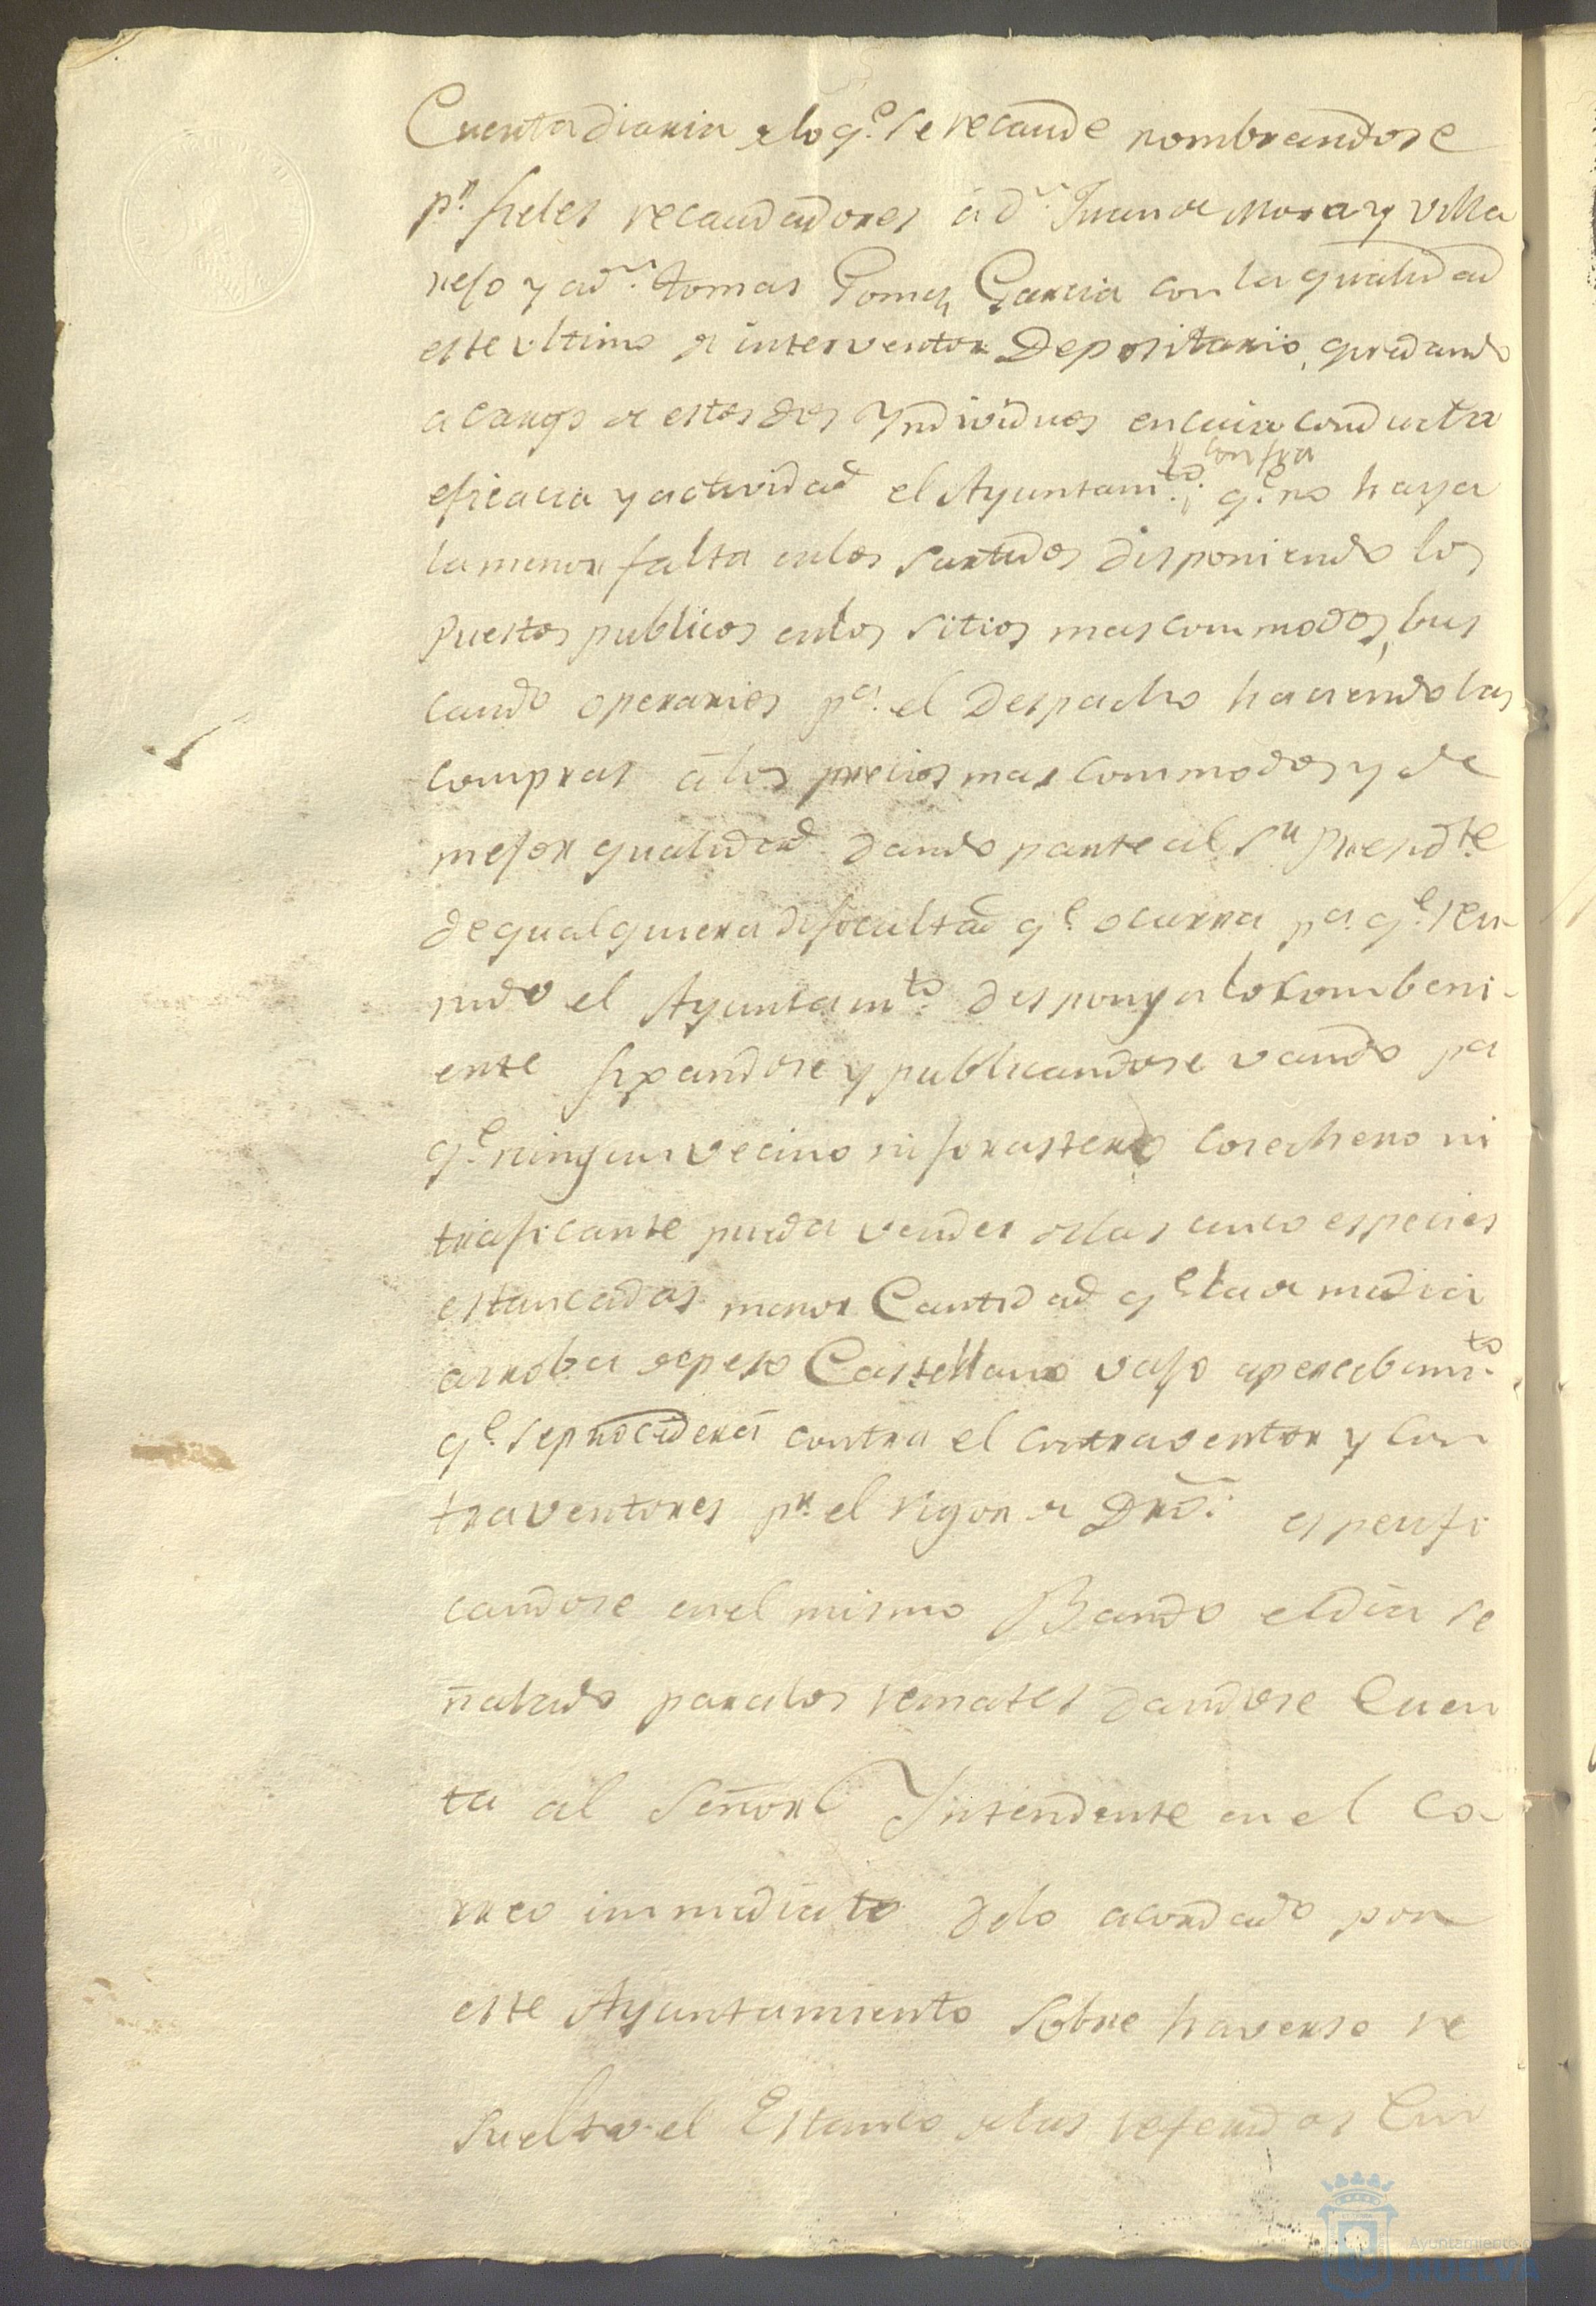 Cuenta diaria de lo q.e se recaude nombrandose
p.r fieles recaudadores á d.n Juan de Mora y Villa
rejo y a d.n tomas Gomez Garcia con la qualidad
este ultimo de interventor Depositario, quedando
a cargo de estos dos Yndividuos en cuia conducta
eficacia y actividad el Ayuntam.to y confia q.e no haya
la menor falta en los surtidos disponiendo los
Puestos publicos en los sitios mas commodos, bus
cando operarios p.a el Despacho haciendo las
compras á los precios mas commodos y de
mejor qualidad dando parte al S.r Presid.te
de qualquiera dificultad q.e ocurra p.a q.e reu-
nido el Ayuntam.to disponga lo combeni-
ente fixandose y publicandose vando p.a
q.e ningun vecino ni forastero cosechero ni
traficante pueda vender de las cinco especies
estancadas menor Cantidad q.e la de media
arroba de peso Castellano vajo apercibim.to
q.e se procederá contra el contraventor y con
traventores p.r el rigor de Dro: especifi
candose en el mismo Bando el dia se
ñalado para los remates dandose Cuen
ta al Señor Intendente en el co-
rreo immediato de lo acordado por
este Ayuntamiento sobre haverse re
suelto el Estanco de las referidas Cin
Ayuntamiento
HUELVA